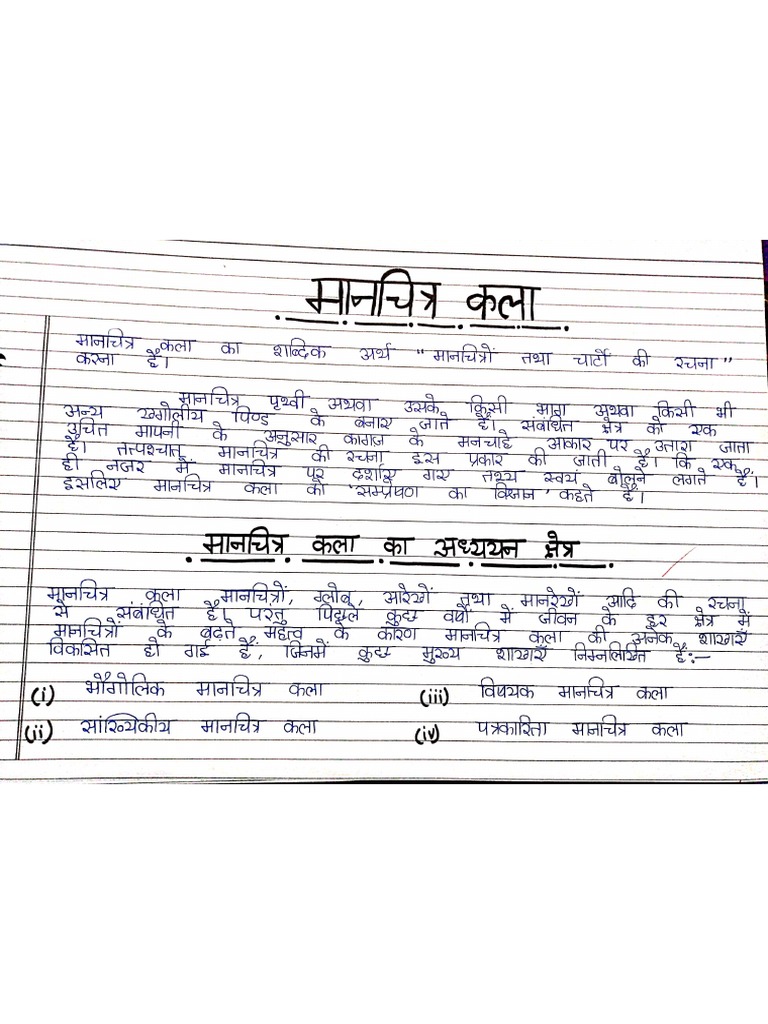 मानचित्र कला
मानचित्र कला का शाब्दिक अर्थ "मानचित्रों तथा चार्टो की रचना"
करना है।
मानचित्र पृथ्वी अथवा उसके किसी भाग अथवा किसी भी
अन्य खगोलीय पिण्ड के बनाए जाते है। संबंधित क्षेत्र को एक
उचित मापनी के अनुसार कागज के मनचाहे आकार पर उतारा जाता
है। तत्पश्चात् मानचित्र की रचना इस प्रकार की जाती है। कि एक
ही नजर में मानचित्र पर दर्शाए गए तथ्य स्वयं बोलने लगते हैं।
इसलिए मानचित्र कला को 'सम्प्रेषण का विज्ञान' कहते हैं।
मानचित्र कला का अध्ययन क्षेत्र
मानचित्र कला मानचित्रों, ग्लोब, आरेखों तथा मानरेखों आदि की रचना
से संबंधित है। परन्तु पिछले कुछ वर्षो में जीवन के हर क्षेत्र में
मानचित्रों के बढ़ते महत्व के कारण मानचित्र कला की अनेक शाखाएँ
विकसित हो गई हैं, जिनमें कुछ मुख्य शाखाएँ निम्नलिखित है:-
(i) भौगोलिक मानचित्र कला (iii) विषयक मानचित्र कला
(ii) सांख्यिकीय मानचित्र कला (iv) पत्रकारिता मानचित्र कला